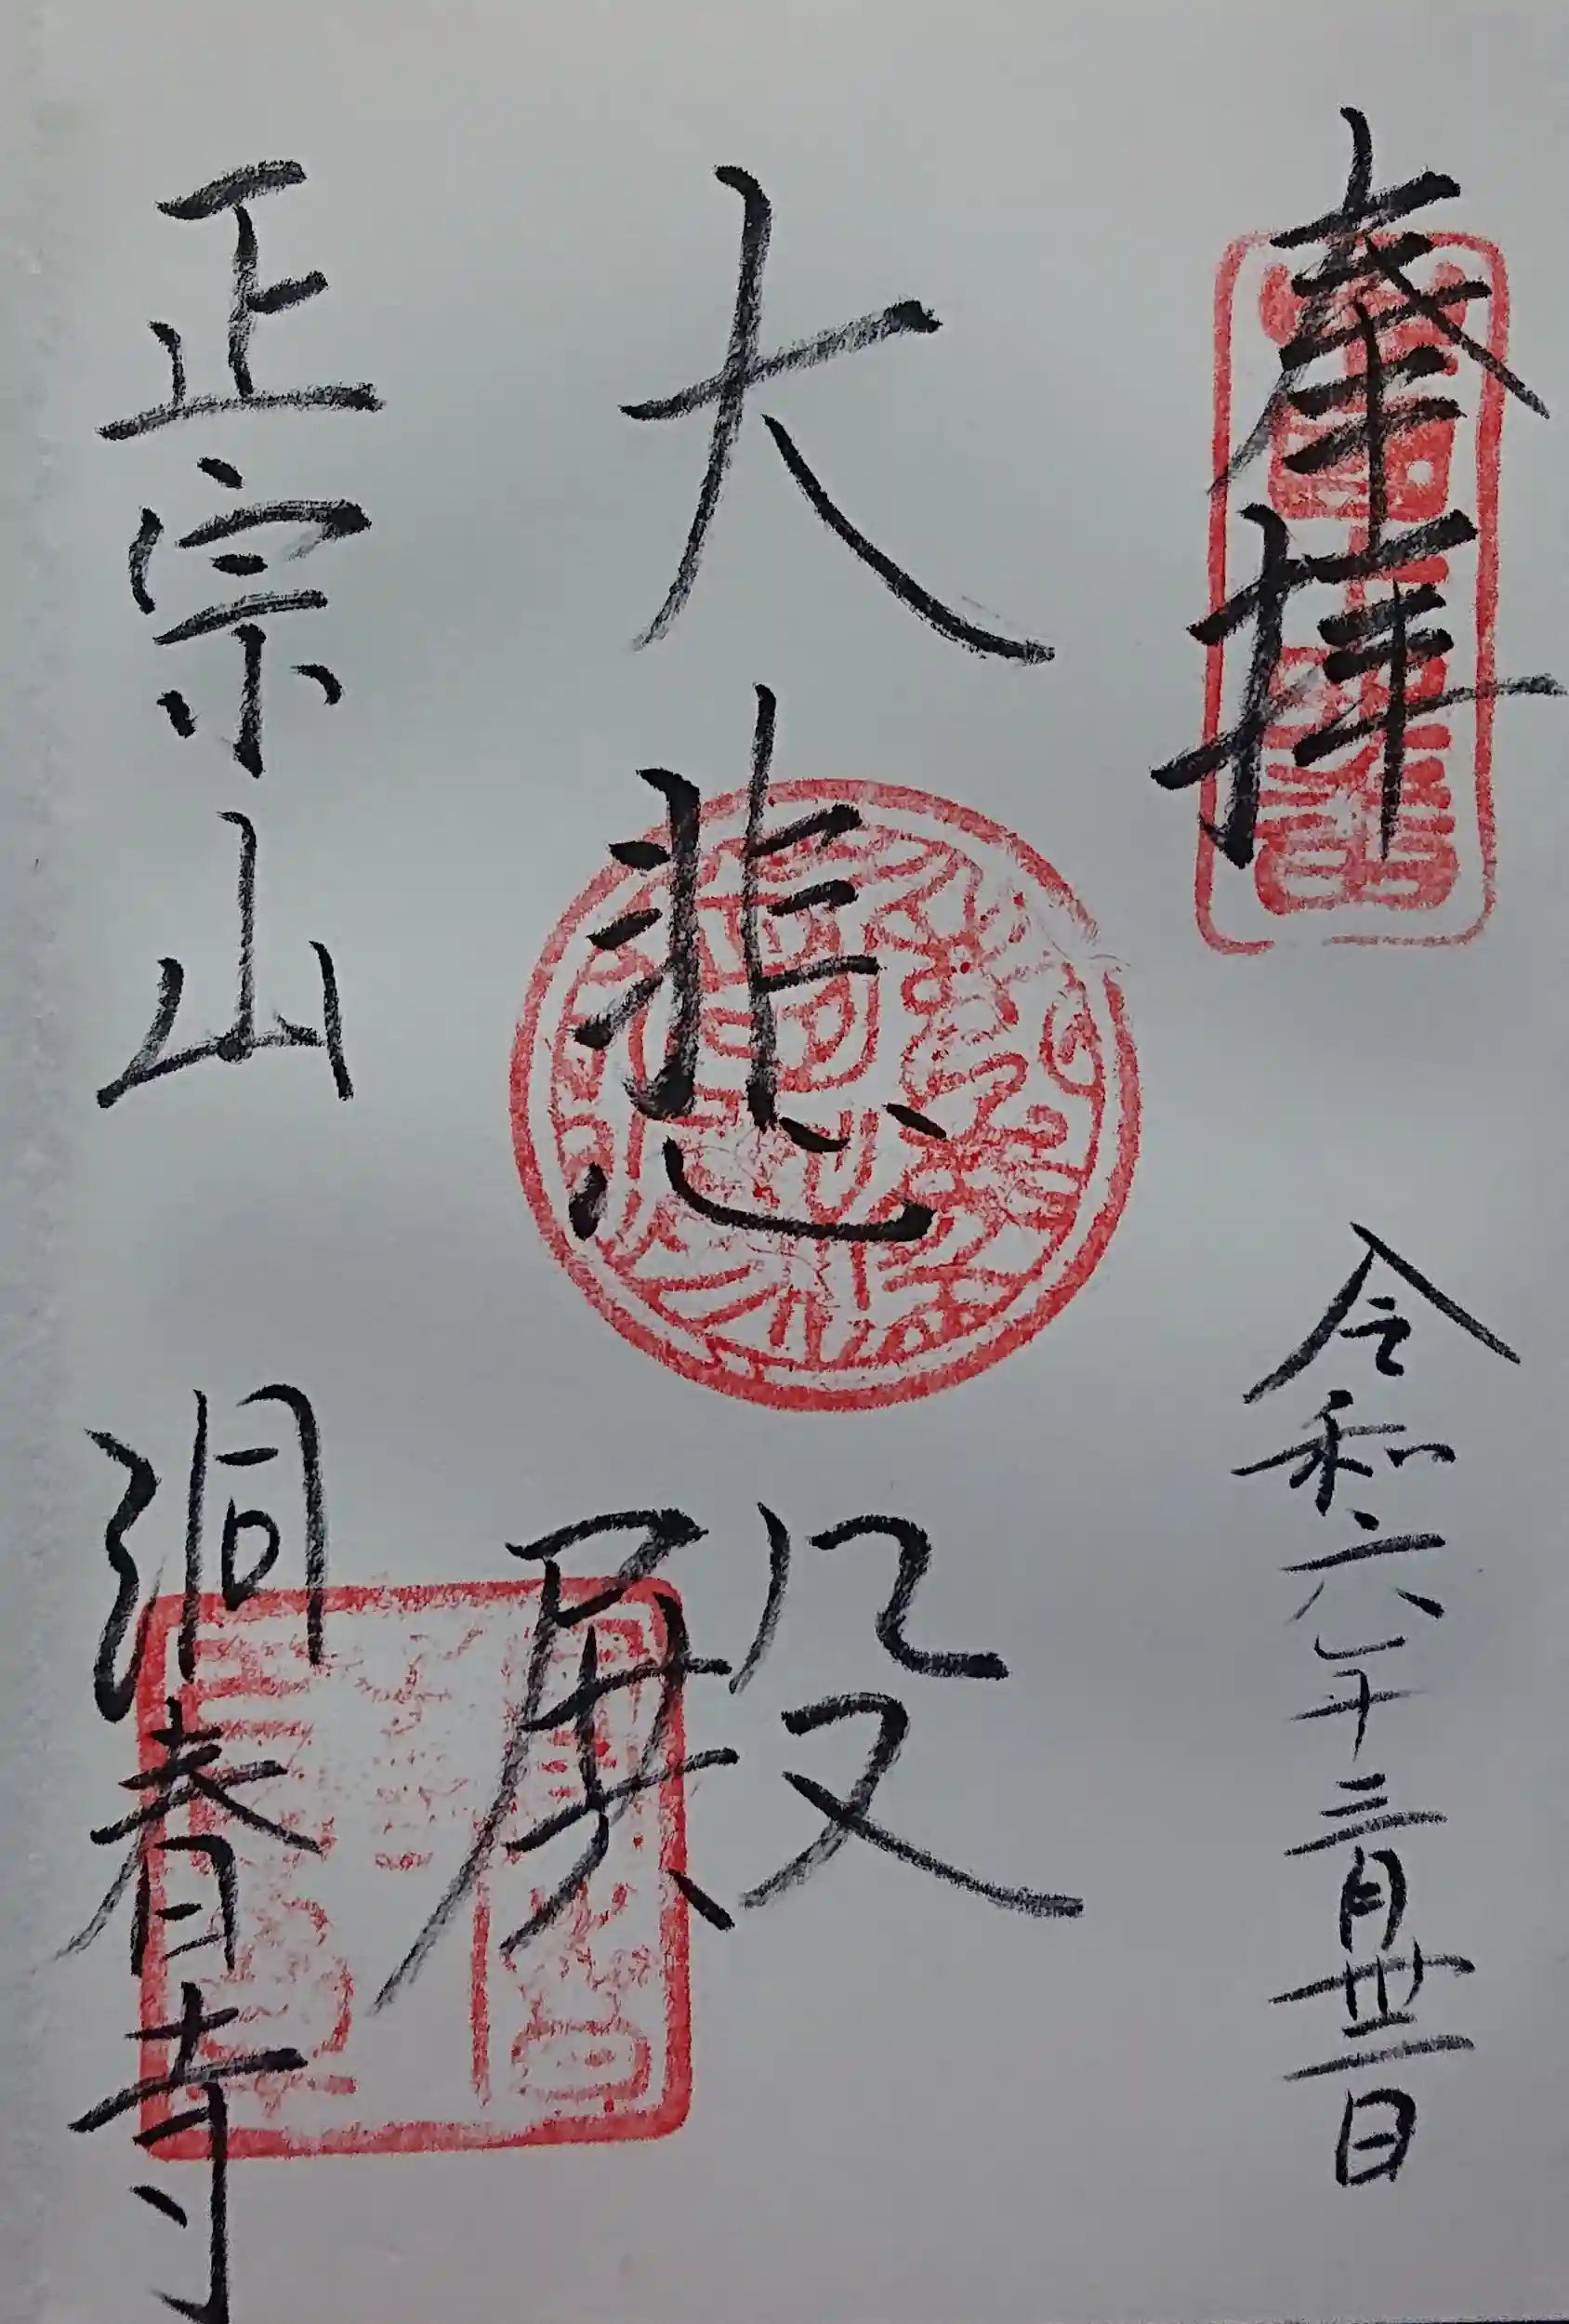 奉拝
令和六年三月丗一日
大悲殿
正宗山
洞春寺